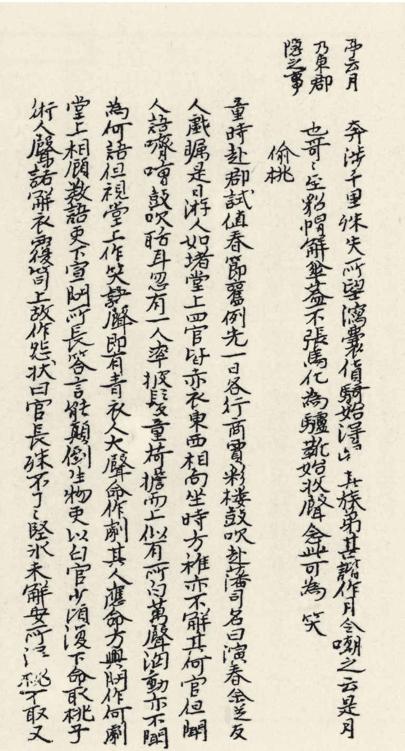 亭云月
乃東郡
隱之事
奔涉千里殊失所望瀉囊貨騎始得歸其族弟甚諧作月令嘲之云是月
也哥々至貂帽解傘蓋不張馬化為驢靴始收聲念此可為笑
偷桃
童時赴郡試值春節舊例先一日各行商賈彩樓鼓吹赴藩司名曰演春余从友
人戲矚是日游人如堵堂上四官皆赤衣東西相向坐時方稚亦不解其何官但聞
人語嚌嘈鼓吹聒耳忽有一人率披髮童荷擔而上似有所白萬聲洶動亦不聞
為何語但視堂上作笑語聲即有青衣人大聲命作劇其人應命方興問作何劇
堂上相顧數語吏下宣問所長答言能顛倒生物吏以白官少頃復下命取桃子
術人聲諾解衣覆笥上故作怨狀曰官長殊不了々堅冰未解安所得桃不取又